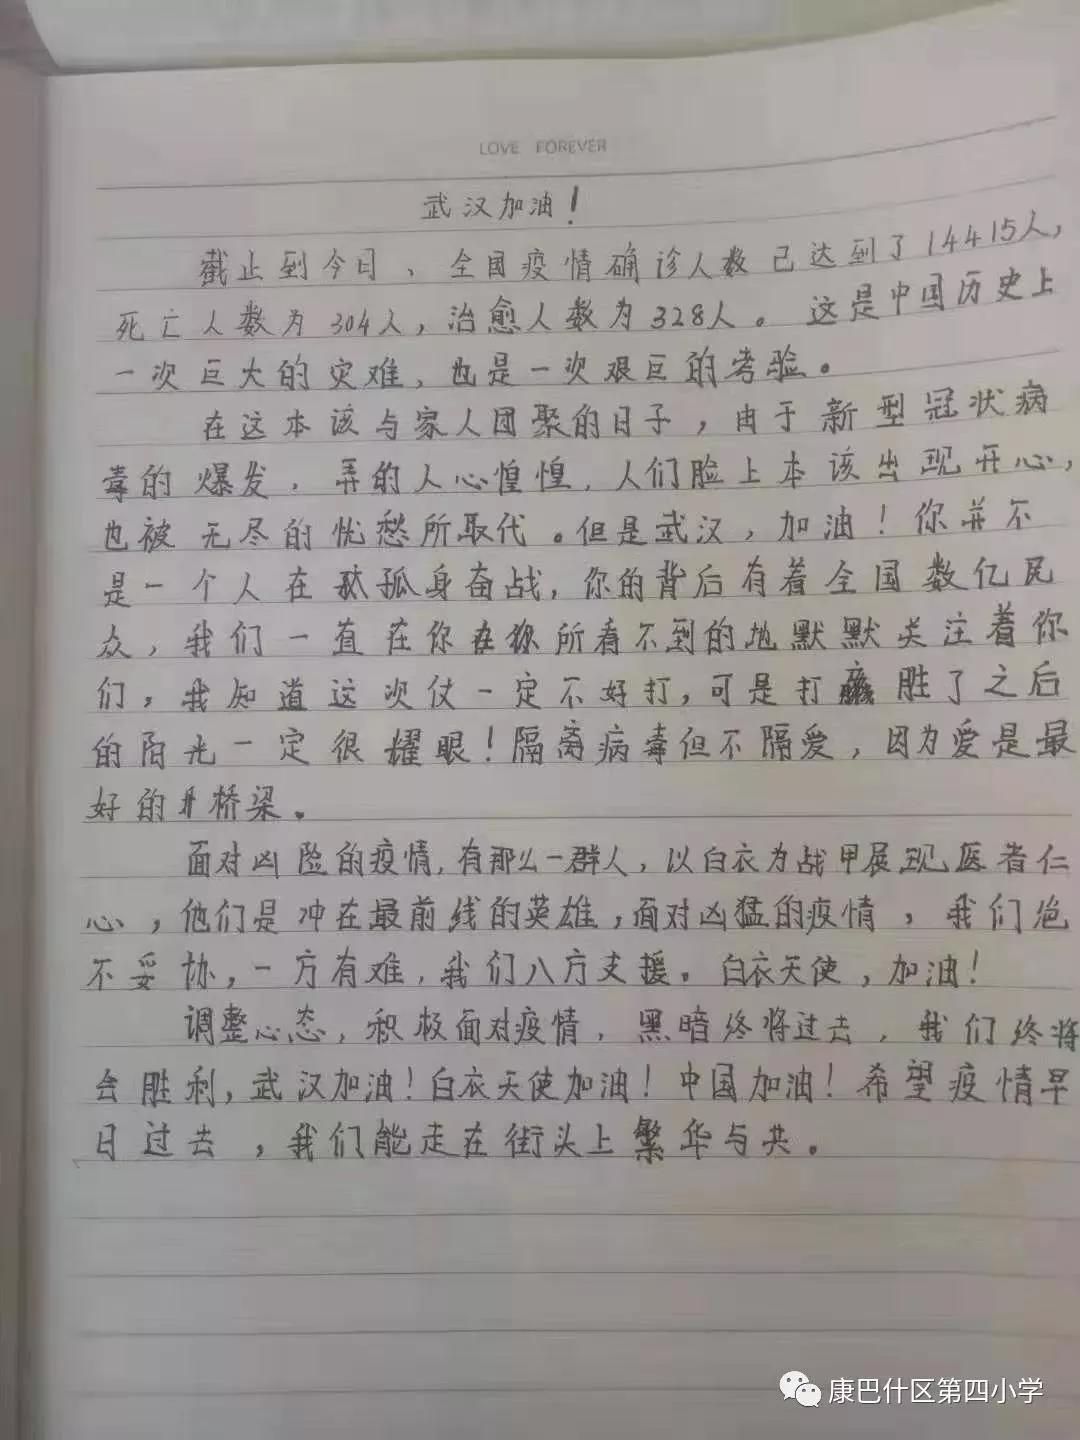 LOVE FOREVER
武汉加油！
截止到今日、全国疫情确诊人数已达到了14415人，
死亡人数为304人，治愈人数为328人。这是中国历史上
一次巨大的灾难，也是一次艰巨的考验。
在这本该与家人团聚的日子，由于新型冠状病
毒的爆发，弄的人心惶惶，人们脸上本该出现开心，
也被无尽的忧愁所取代。但是武汉，加油！你并不
是一个人在孤身奋战，你的背后有着全国数亿民
众，我们一直在你所看不到的地默默关注着你
们，我知道这次仗一定不好打，可是打胜了之后
的阳光一定很耀眼！隔离病毒但不隔爱，因为爱是最
好的桥梁。
面对凶险的疫情，有那么一群人，以白衣为战甲展现医者仁
心，他们是冲在最前线的英雄，面对凶猛的疫情，我们绝
不妥协，一方有难，我们八方支援。白衣天使，加油！
调整心态，积极面对疫情，黑暗终将过去，我们终将
会胜利，武汉加油！白衣天使加油！中国加油！希望疫情早
日过去，我们能走在街头上繁华与共。
康巴什区第四小学